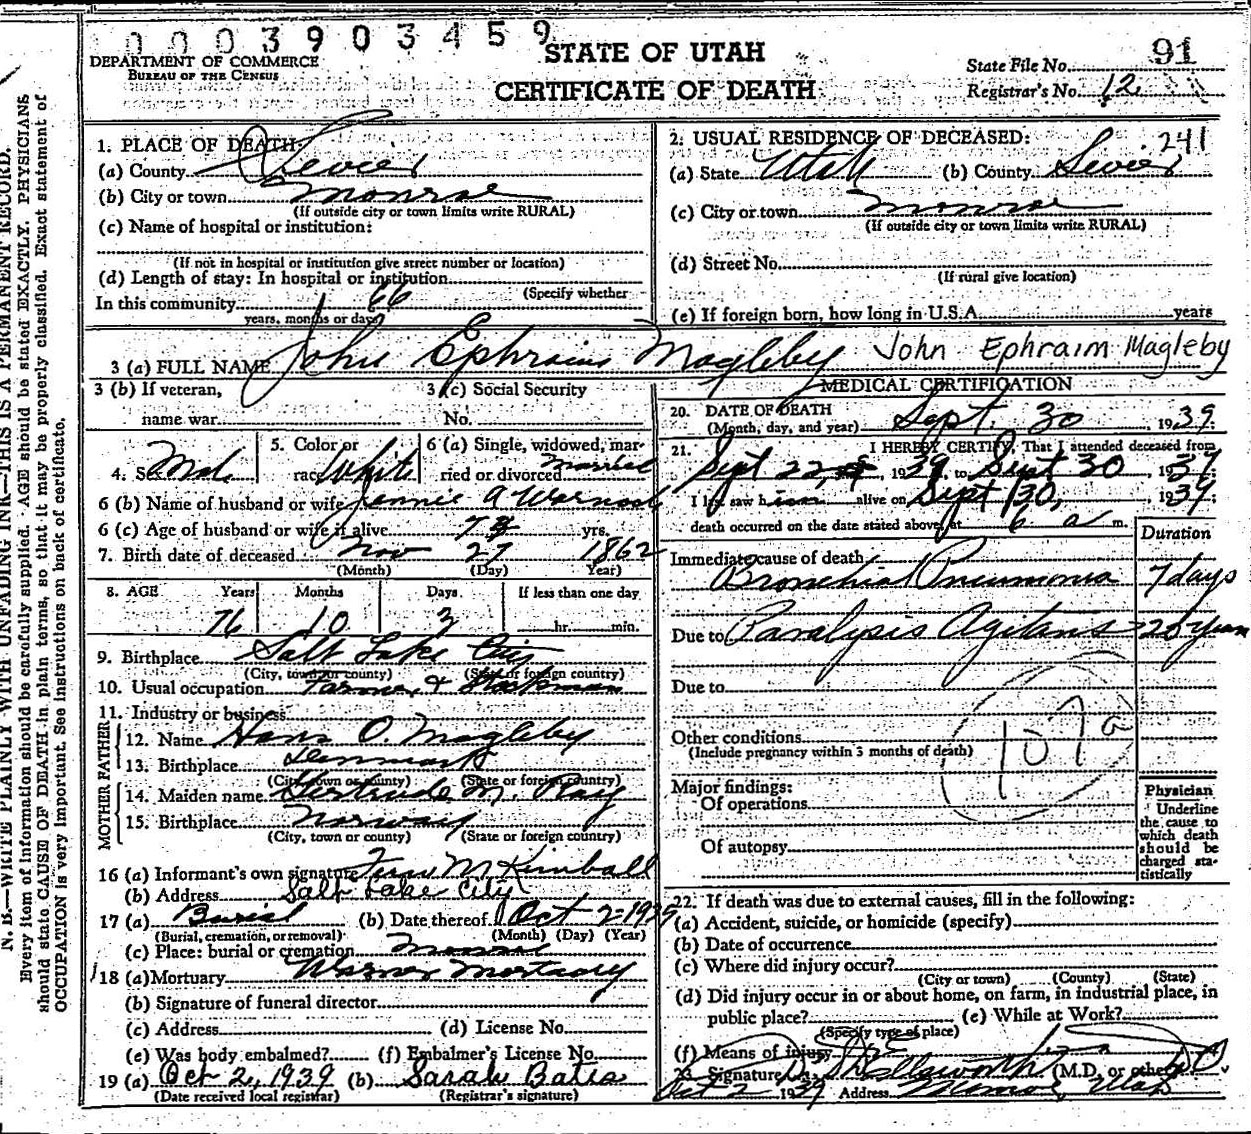 0003903459
DEPARTMENT OF COMMERCE
BUREAU OF THE CENSUS
STATE OF UTAH
CERTIFICATE OF DEATH
State File No. 91
Registrar's No. 12
241
N. B.—WRITE PLAINLY WITH UNFADING INK—THIS IS A PERMANENT RECORD.
Every item of information should be carefully supplied. AGE should be stated EXACTLY. PHYSICIANS
should state CAUSE OF DEATH in plain terms, so that it may be properly classified. Exact statement of
OCCUPATION is very important. See instructions on back of certificate.
1. PLACE OF DEATH:
(a) County Sevier
(b) City or town Monroe
(If outside city or town limits write RURAL)
(c) Name of hospital or institution:
(If not in hospital or institution give street number or location)
(d) Length of stay: In hospital or institution
(Specify whether
In this community 66
years, months or days)
2. USUAL RESIDENCE OF DECEASED:
(a) State Utah (b) County Sevier
(c) City or town Monroe
(If outside city or town limits write RURAL)
(d) Street No.
(If rural give location)
(e) If foreign born, how long in U.S.A. years
3 (a) FULL NAME John Ephraim Magleby John Ephraim Magleby
3 (b) If veteran, 3 (c) Social Security
name war No.
4. Sex Male 5. Color or race White 6 (a) Single, widowed, married or divorced married
6 (b) Name of husband or wife Jennie A Warnock
6 (c) Age of husband or wife if alive yrs.
7. Birth date of deceased Nov 27 1862
(Month) (Day) Year)
8. AGE Years Months Days If less than one day
76 10 3 hr. min.
9. Birthplace Salt Lake City
(City, town or county) (State or foreign country)
10. Usual occupation Farmer & Stockman
11. Industry or business
FATHER
12. Name Hans O. Magleby
13. Birthplace Denmark
(City, town or county) (State or foreign country)
MOTHER
14. Maiden name Gertrude M.
15. Birthplace Norway
(City, town or county) (State or foreign country)
16 (a) Informant's own signature M Kimball
(b) Address Salt Lake City
17 (a) Burial (b) Date thereof Oct 2-1939
(Burial, cremation, or removal) (Month) (Day) (Year)
(c) Place: burial or cremation Monroe
18 (a) Mortuary Warner Mortuary
(b) Signature of funeral director
(c) Address (d) License No.
(e) Was body embalmed? (f) Embalmer's License No.
19 (a) Oct 2, 1939 (b) Sarah Bates
(Date received local registrar) (Registrar's signature)
MEDICAL CERTIFICATION
20. DATE OF DEATH
(Month, day, and year) Sept. 30, 1939
21. I HEREBY CERTIFY, That I attended deceased from
Sept 22, 1939, to Sept 30, 1939
I last saw him alive on Sept 30, 1939
death occurred on the date stated above, at 6 a m.
Duration
Immediate cause of death
Bronchial Pneumonia 7 days
Due to Paralysis Agitans 20 years
Due to
107a
Other conditions
(Include pregnancy within 3 months of death)
Major findings:
Of operations
Of autopsy
Physician
Underline
the cause to
which death
should be
charged sta-
tistically
22. If death was due to external causes, fill in the following:
(a) Accident, suicide, or homicide (specify)
(b) Date of occurrence
(c) Where did injury occur?
(City or town) (County) (State)
(d) Did injury occur in or about home, on farm, in industrial place, in
public place? (e) While at Work?
(Specify type of place)
(f) Means of injury
23. Signature Ellsworth (M.D. or other)
Oct 2 1939 Address Monroe, Utah